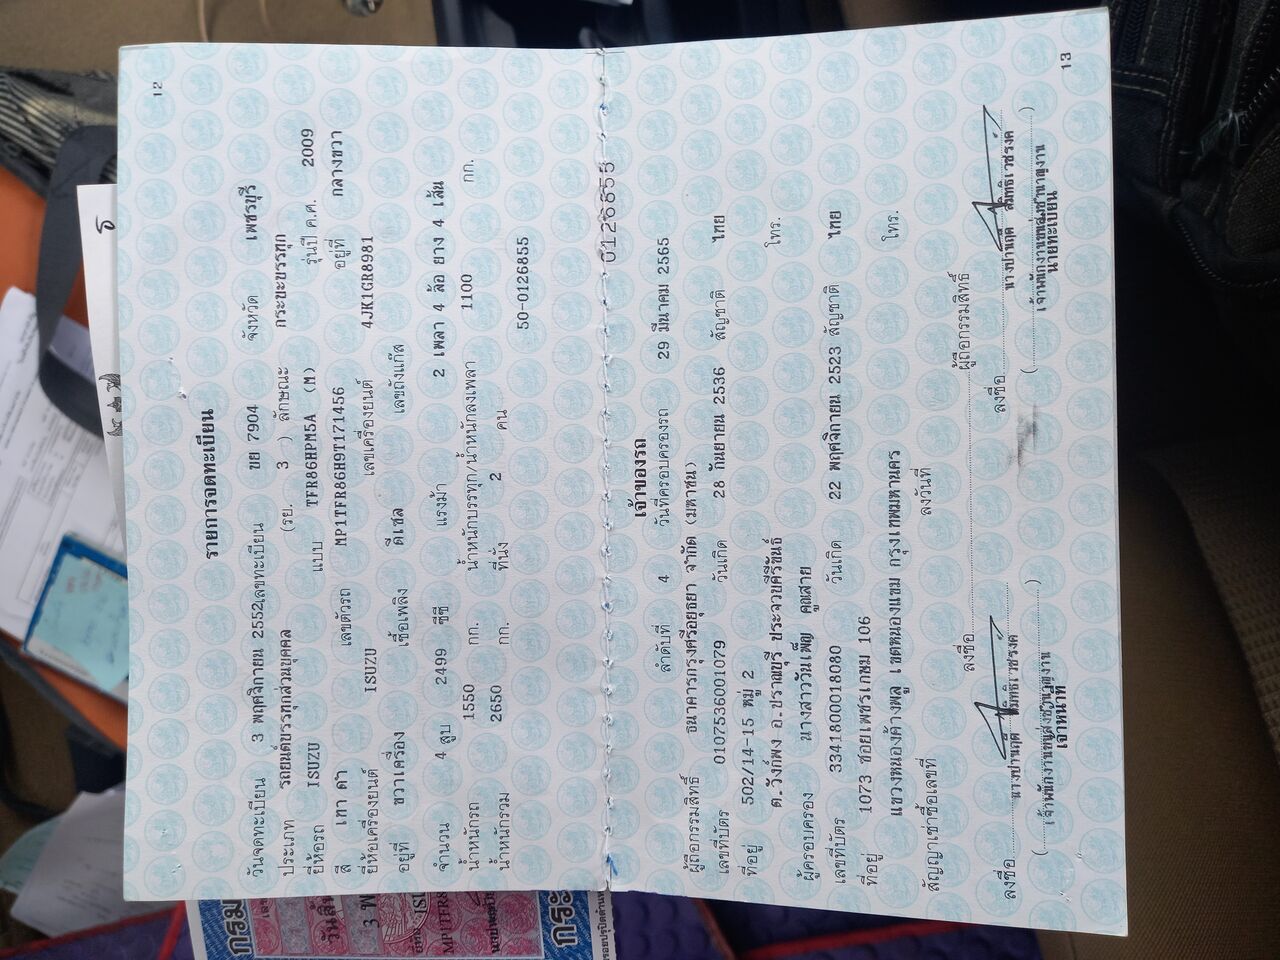 12
รายการจดทะเบียน
วันจดทะเบียน 3 พฤศจิกายน 2552 เลขทะเบียน ขย 7904 จังหวัด เพชรบุรี
ประเภท รถยนต์บรรทุกส่วนบุคคล (รย. 3 ) ลักษณะ กระบะบรรทุก
ยี่ห้อรถ ISUZU แบบ TFR86HPM5A (M) รุ่นปี ค.ศ. 2009
สี เทา ดำ เลขตัวรถ MP1TFR86H9T171456 อยู่ที่ กลางขวา
ยี่ห้อเครื่องยนต์ ISUZU เลขเครื่องยนต์ 4JK1GR8981
อยู่ที่ ขวาเครื่อง เชื้อเพลิง ดีเซล เลขถังแก๊ส
จำนวน 4 สูบ 2499 ซีซี แรงม้า 2 เพลา 4 ล้อ ยาง 4 เส้น
น้ำหนักรถ 1550 กก. น้ำหนักบรรทุก/น้ำหนักลงเพลา 1100 กก.
น้ำหนักรวม 2650 กก. ที่นั่ง 2 คน
50-0126855
0126855
เจ้าของรถ
ลำดับที่ 4 วันที่ครอบครองรถ 29 มีนาคม 2565
ผู้ถือกรรมสิทธิ์ ธนาคารกรุงศรีอยุธยา จำกัด (มหาชน)
เลขที่บัตร 0107536001079 วันเกิด 28 กันยายน 2536 สัญชาติ ไทย
ที่อยู่ 502/14-15 หมู่ 2 โทร.
ต.วังก์พง อ.ปราณบุรี ประจวบคีรีขันธ์
ผู้ครอบครอง นางสาววันเพ็ญ คูณสาย
เลขที่บัตร 3341800018080 วันเกิด 22 พฤศจิกายน 2523 สัญชาติ ไทย
ที่อยู่ 1073 ซอยเพชรเกษม 106 โทร.
แขวงหนองค้างพลู เขตหนองแขม กรุงเทพมหานคร
สัญญาเช่าซื้อเลขที่ ลงวันที่
ลงชื่อ ผู้ถือกรรมสิทธิ์
ลงชื่อ นางปานฤดี ลงชื่อ นางปานฤดี
(เจ้าพนักงานขนส่งชำนาญงาน) (เจ้าพนักงานขนส่งชำนาญงาน)
เจ้าหน้าที่ นายทะเบียน
13
กรม
วันสิ้
3 พ
MP1TFR8
กระ